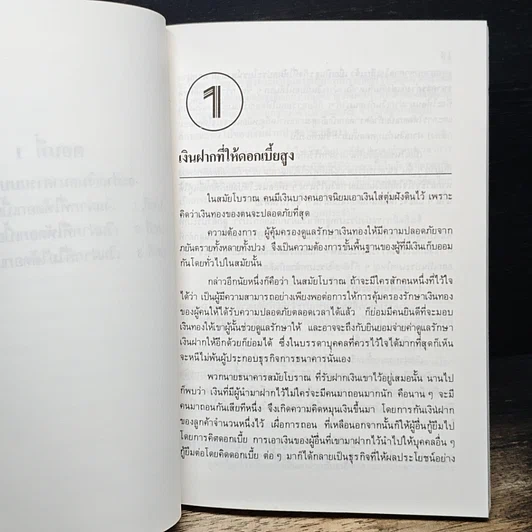 1
เงินฝากที่ให้ดอกเบี้ยสูง
ในสมัยโบราณ คนมีเงินบางคนอาจนิยมเอาเงินใส่ตุ่มฝังดินไว้ เพราะ
คิดว่าเงินทองของตนจะปลอดภัยที่สุด
ความต้องการ ผู้คุ้มครองดูแลรักษาเงินทองให้มีความปลอดภัยจาก
ภยันตรายทั้งหลายทั้งปวง จึงเป็นความต้องการขั้นพื้นฐานของผู้ที่มีเงินเก็บออม
กันโดยทั่วไปในสมัยนั้น
กล่าวอีกนัยหนึ่งก็คือว่า ในสมัยโบราณ ถ้าจะมีใครสักคนหนึ่งที่ไว้ใจ
ได้ว่า เป็นผู้มีความสามารถอย่างเพียงพอต่อการให้การคุ้มครองรักษาเงินทอง
ของผู้คนให้ได้รับความปลอดภัยตลอดเวลาได้แล้ว ก็ย่อมมีคนยินดีที่จะมอบ
เงินทองให้เขาผู้นั้นช่วยดูแลรักษาให้ และอาจจะถึงกับยินยอมจ่ายค่าดูแลรักษา
เงินฝากให้อีกด้วยก็ย่อมได้ ซึ่งในบรรดาบุคคลที่ควรไว้ใจได้มากที่สุดก็เห็น
จะหนีไม่พ้นผู้ประกอบธุรกิจการธนาคารนั่นเอง
พวกนายธนาคารสมัยโบราณ ที่รับฝากเงินเขาไว้อยู่เสมอนั้น นานไป
ก็พบว่า เงินที่มีผู้นำมาฝากไว้ไม่ใคร่จะมีคนมาถอนมากนัก คือนาน ๆ จะมี
คนมาถอนกันเสียทีหนึ่ง จึงเกิดความคิดหมุนเงินขึ้นมา โดยการกันเงินฝาก
ของลูกค้าจำนวนหนึ่งไว้ เผื่อการถอน ที่เหลือนอกจากนั้นก็ให้ผู้อื่นกู้ยืมไป
โดยการคิดดอกเบี้ย การเอาเงินของผู้อื่นที่เขามาฝากไว้นำไปให้บุคคลอื่น ๆ
กู้ยืมต่อโดยคิดดอกเบี้ย ต่อ ๆ มาก็ได้กลายเป็นธุรกิจที่ให้ผลประโยชน์อย่าง